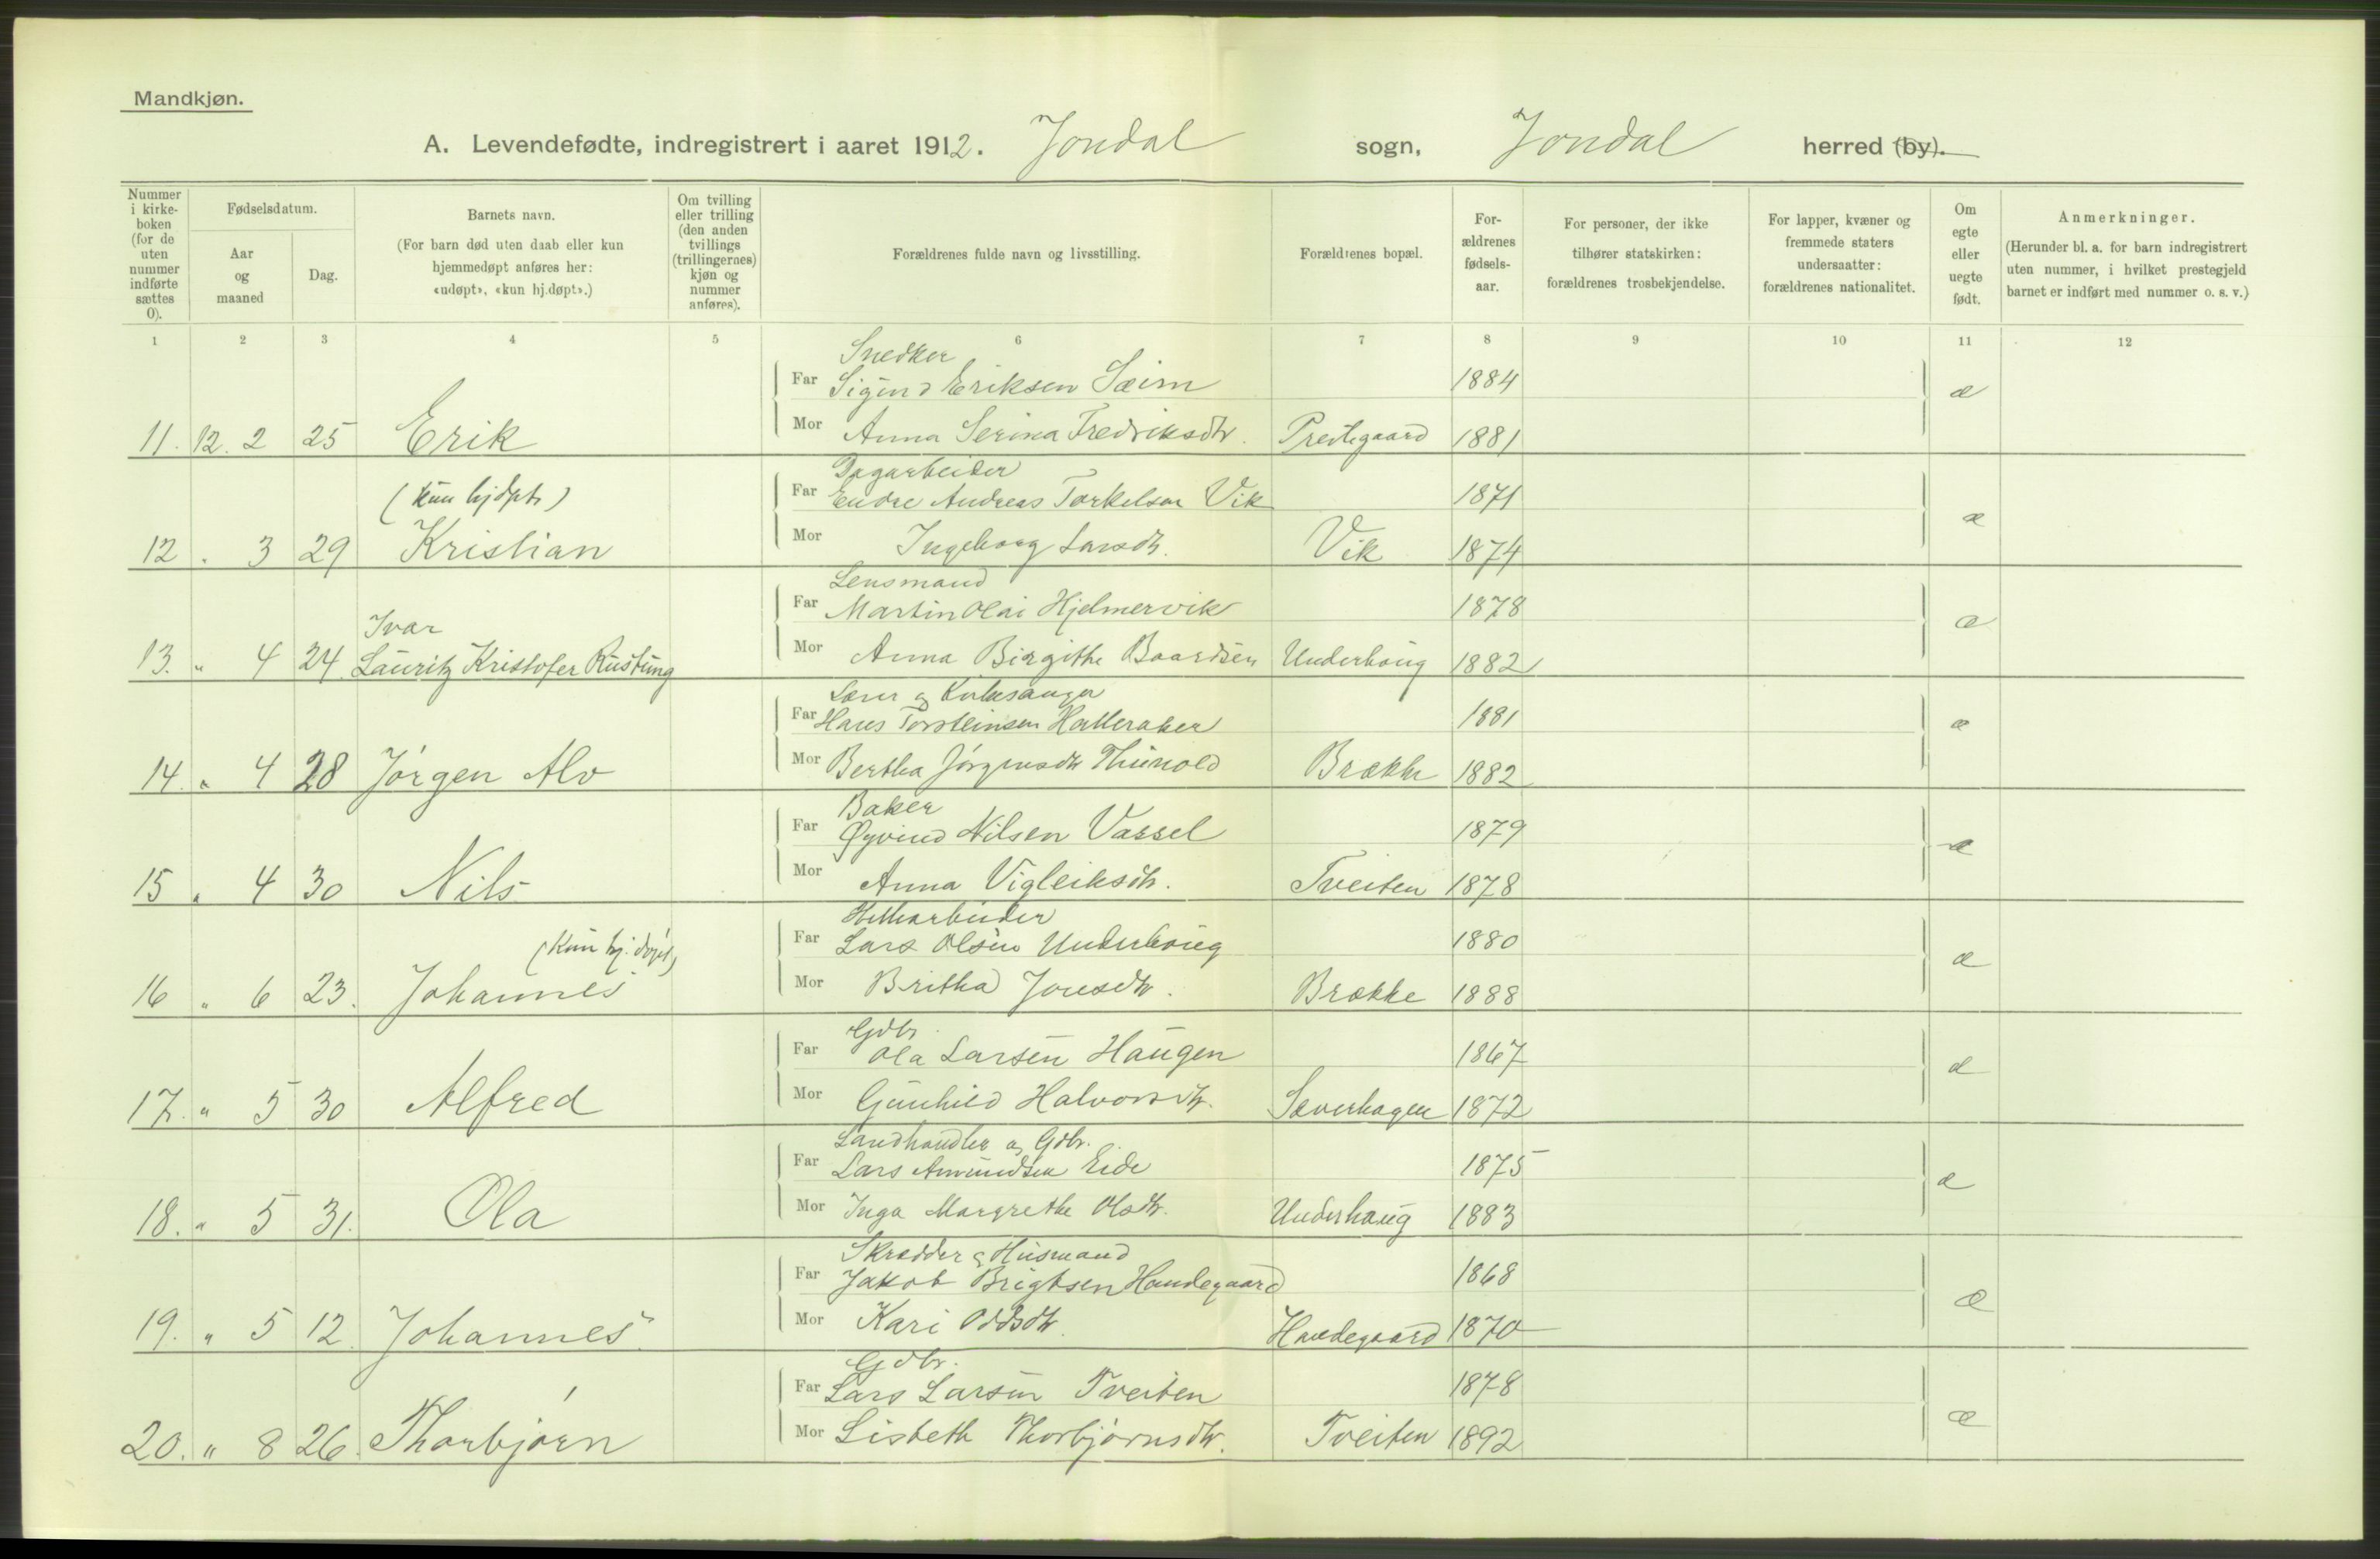 Mandkjøn.
A. Levendefødte, indregistrert i aaret 1912. Jondal sogn, Jondal herred (by).
Nummer i kirke-boken (for de uten nummer indførte sættes 0).
Fødselsdatum.
Aar og maaned
Dag.
Barnets navn.
(For barn død uten daab eller kun hjemmedøpt anføres her: «udøpt», «kun hj.døpt».)
Om tvilling eller trilling (den anden tvillings (trillingernes) kjøn og nummer anføres).
Forældrenes fulde navn og livsstilling.
Forældrenes bopæl.
For-ældrenes fødsels-aar.
For personer, der ikke tilhører statskirken: forældrenes trosbekjendelse.
For lapper, kvæner og fremmede staters undersaatter: forældrenes nationalitet.
Om egte eller uegte født.
Anmerkninger.
(Herunder bl. a. for barn indregistrert uten nummer, i hvilket prestegjeld barnet er indført med nummer o. s. v.)
1 2 3 4 5 6 7 8 9 10 11 12
Snedker
Far Sigurd Eriksen Sæim 1884 æ
11. 12. 2 25 Erik Mor Anna Serina Fredriksdtr. Prestegaard 1881
Dagarbeider
(kun hjdpt) Far Endre Andreas Torkelsen Vik 1871 æ
12 . 3 29 Kristian Mor Ingeborg Larsdtr. Vik 1874
Lensmand
Ivar Far Martin Olai Hjelmervik 1878 æ
13. " 4 24 Lauritz Kristofer Rustung Mor Anna Birgithe Baardsen Underhaug 1882
Lærer og Kirkesanger
Far Hans Torsteinsen Hatteraker 1881 æ
14. " 4 28 Jørgen Alv Mor Bertha Jørgensdtr Thunold Brække 1882
Baker
Far Øyvind Nilsen Vassel 1879 æ
15 " 4 30 Nils Mor Anna Vigleiksdtr. Tveiten 1878
Hellearbeider
(Kun hj. døpt) Far Lars Olsen Underhaug 1880 æ
16 " 6 23. Johannes Mor Britha Jonsdtr. Brække 1888
Gdbr.
Far Ola Larsen Haugen 1867 æ
17. " 5 30 Alfred Mor Gunhild Halvorsdtr. Sæverhagen 1872
Landhandler og Gdbr.
Far Lars Amundsen Eide 1875 æ
18. " 5 31. Ola Mor Inga Margrethe Olsdtr. Underhaug 1883
Skrædder & Husmand
Far Jakob Brigtsen Handegaard 1868 æ
19. " 5 12 Johannes Mor Kari Oddsdtr. Handegaard 1870
Gdbr.
Far Lars Larsen Tveiten 1878 æ
20. " 8 26. Thorbjørn Mor Lisbeth Thorbjørnsdtr. Tveiten 1892